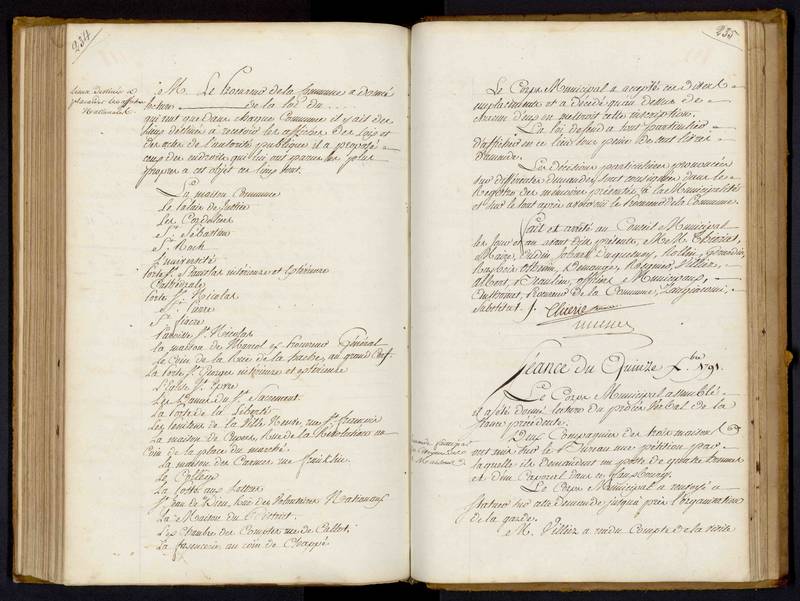 234
Lieux destinés à
placarder les affiches
Nationales
M. Le Procureur de la Commune a donné
lecture de la loi du
qui veut que dans chaque Commune il y ait des
lieux destinés à recevoir les affiches des Lois et
des actes de l'autorité publique il a proposé
ceux des endroits qui lui ont parus les plus
propres à cet objet ces lieux sont.
La maison Commune
Le Palais de Justice
Les Cordeliers
St. Sébastien
St. Roch
L'université
Porte St. Stanislas intérieure et extérieure
Cathédrale
Porte St. Nicolas
St. Pierre
St. fiacre
Paroisse St. Nicolas
La maison de Marcol ex procureur Général
Le Coin de la Rue de la hache, au grand Cerf
La Porte St. Georges intérieure et extérieure
L'Eglise St. Epvre
Les Dames du St. Sacrement
La Porte de la Liberté
Les de la Ville Neuve, rue St. françois
La maison de Rue de la Révolution au
Coin de la place du marché
La maison des Carmes rue franklin
Le Collège
La Poste aux Lettres
St. Jean de Dieu, Rue des Volontaires Nationaux
La Maison du District
Les Chambre des Comptes rue de Callot
La fayencerie au coin de
235
Le Corps Municipal a accepté ces divers
emplacements et a décidé qu'au dessus de
chacun d'eux on mettroit cette inscription.
La loi défend à tout particulier
d'afficher en ce lieu sous peine de cent livres
d'amende.
Les décisions particulières prononcées
sur différentes demandes sont consignées dans le
Registre des mémoires présentés à la Municipalité
et sur le tout après avoir oui le Procureur de la Commune.
Fait et arrêté au Conseil Municipal
les Jour et an avant dits présents, M. M.
Rollin,
Villiez,
Albert, Saulin, officiers Municipaux,
Procureur de la Commune, Zangiacomi,
substitut.
Séance du Quinze Xbre 1791.
Le Corps Municipal assemblé
il a été donné lecture du procès verbal de la
séance précédente.
Deux Compagnies des trois maisons
ont mis sur le Bureau une pétition par
laquelle ils demandent un poste de quatre hommes
et d'un Caporal dans ce fauxbourg.
Le Corps Municipal a renvoyé à
statuer sur cette demande jusqu'à près l'organisation
de la garde.
M. Villiez a rendu Compte de la visite